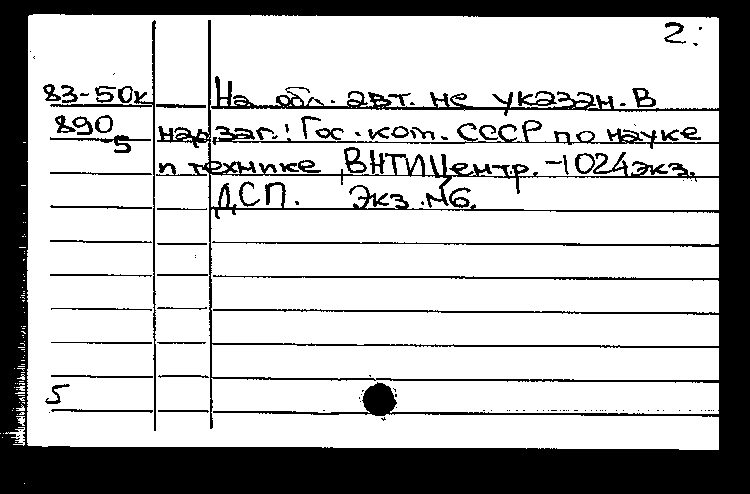 2.
83-50к На обл. авт. не указан. В
890 надзаг.: Гос. ком. СССР по науке
5
и технике, ВНТИЦентр. - 1024 экз.
ДСП. Экз. №6.
5